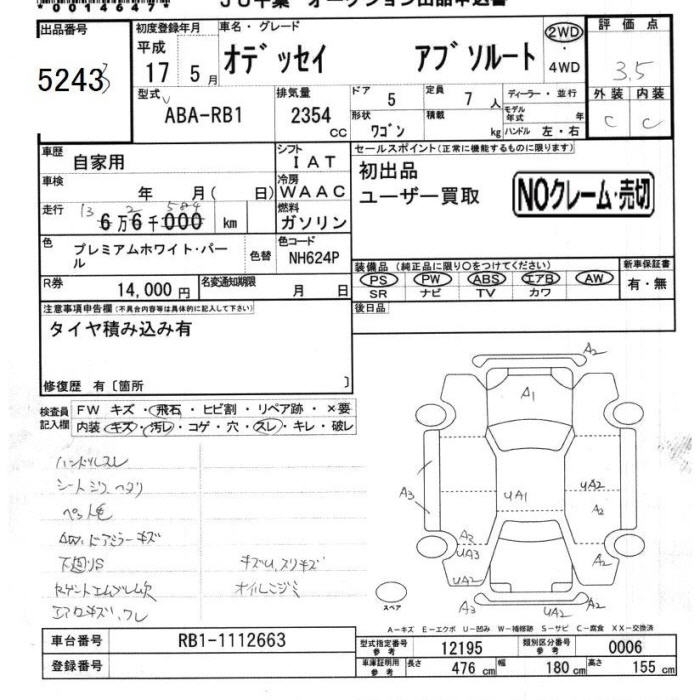 00146474
JU千葉 オークション出品申込書
出品番号 初度登録年月 車名・グレード 評価点
5243 平成 17 年 5 月 オデッセイ アブソルート 2WD・4WD 3.5
型式 ABA-RB1 排気量 2354 CC ドア 5 定員 7 人 ディーラー・並行 外装 内装
形状 ワゴン 積載 kg モデル年式 年 ハンドル 左・右 C C
車歴 自家用 シフト IAT セールスポイント(正常に機能するものに限り)
車検 年 月( 日) 冷房 WAAC 初出品
ユーザー買取 NOクレーム・売切
走行 6万6千000 km 13 2 584 燃料 ガソリン
色 プレミアムホワイト・パール 色替 色コード NH624P
装備品(純正品に限り○をつけてください) 新車保証書
PS PW ABS エアB AW 有・無
SR ナビ TV カワ
R券 14,000円 名変通知期限 月 日 後日品
注意事項申告欄(不具合内容等は具体的に記入して下さい)
タイヤ積み込み有
修復歴 有〔箇所 〕
検査員記入欄 FW キズ・飛石・ヒビ割・リペア跡・×要
内装 キズ・汚レ・コゲ・穴・スレ・キレ・破レ
ハンドルスレ
シートシワ、ヘタリ
AW、ドアミラーキズ
下廻りS キズU、スリキズ
オイルニジミ
A2
A1
A3 UA1 UA2
A2
A2
UA3
UA2 UA2
A3 A2
スペア
A－キズ E－エクボ U－凹み W－補修跡 S－サビ C－腐食 XX－交換済
車台番号 RB1-1112663 型式指定番号 参考 12195 類別区分番号 参考 0006
登録番号 車庫証明用 参考 長さ 476 cm 幅 180 cm 高さ 155 cm